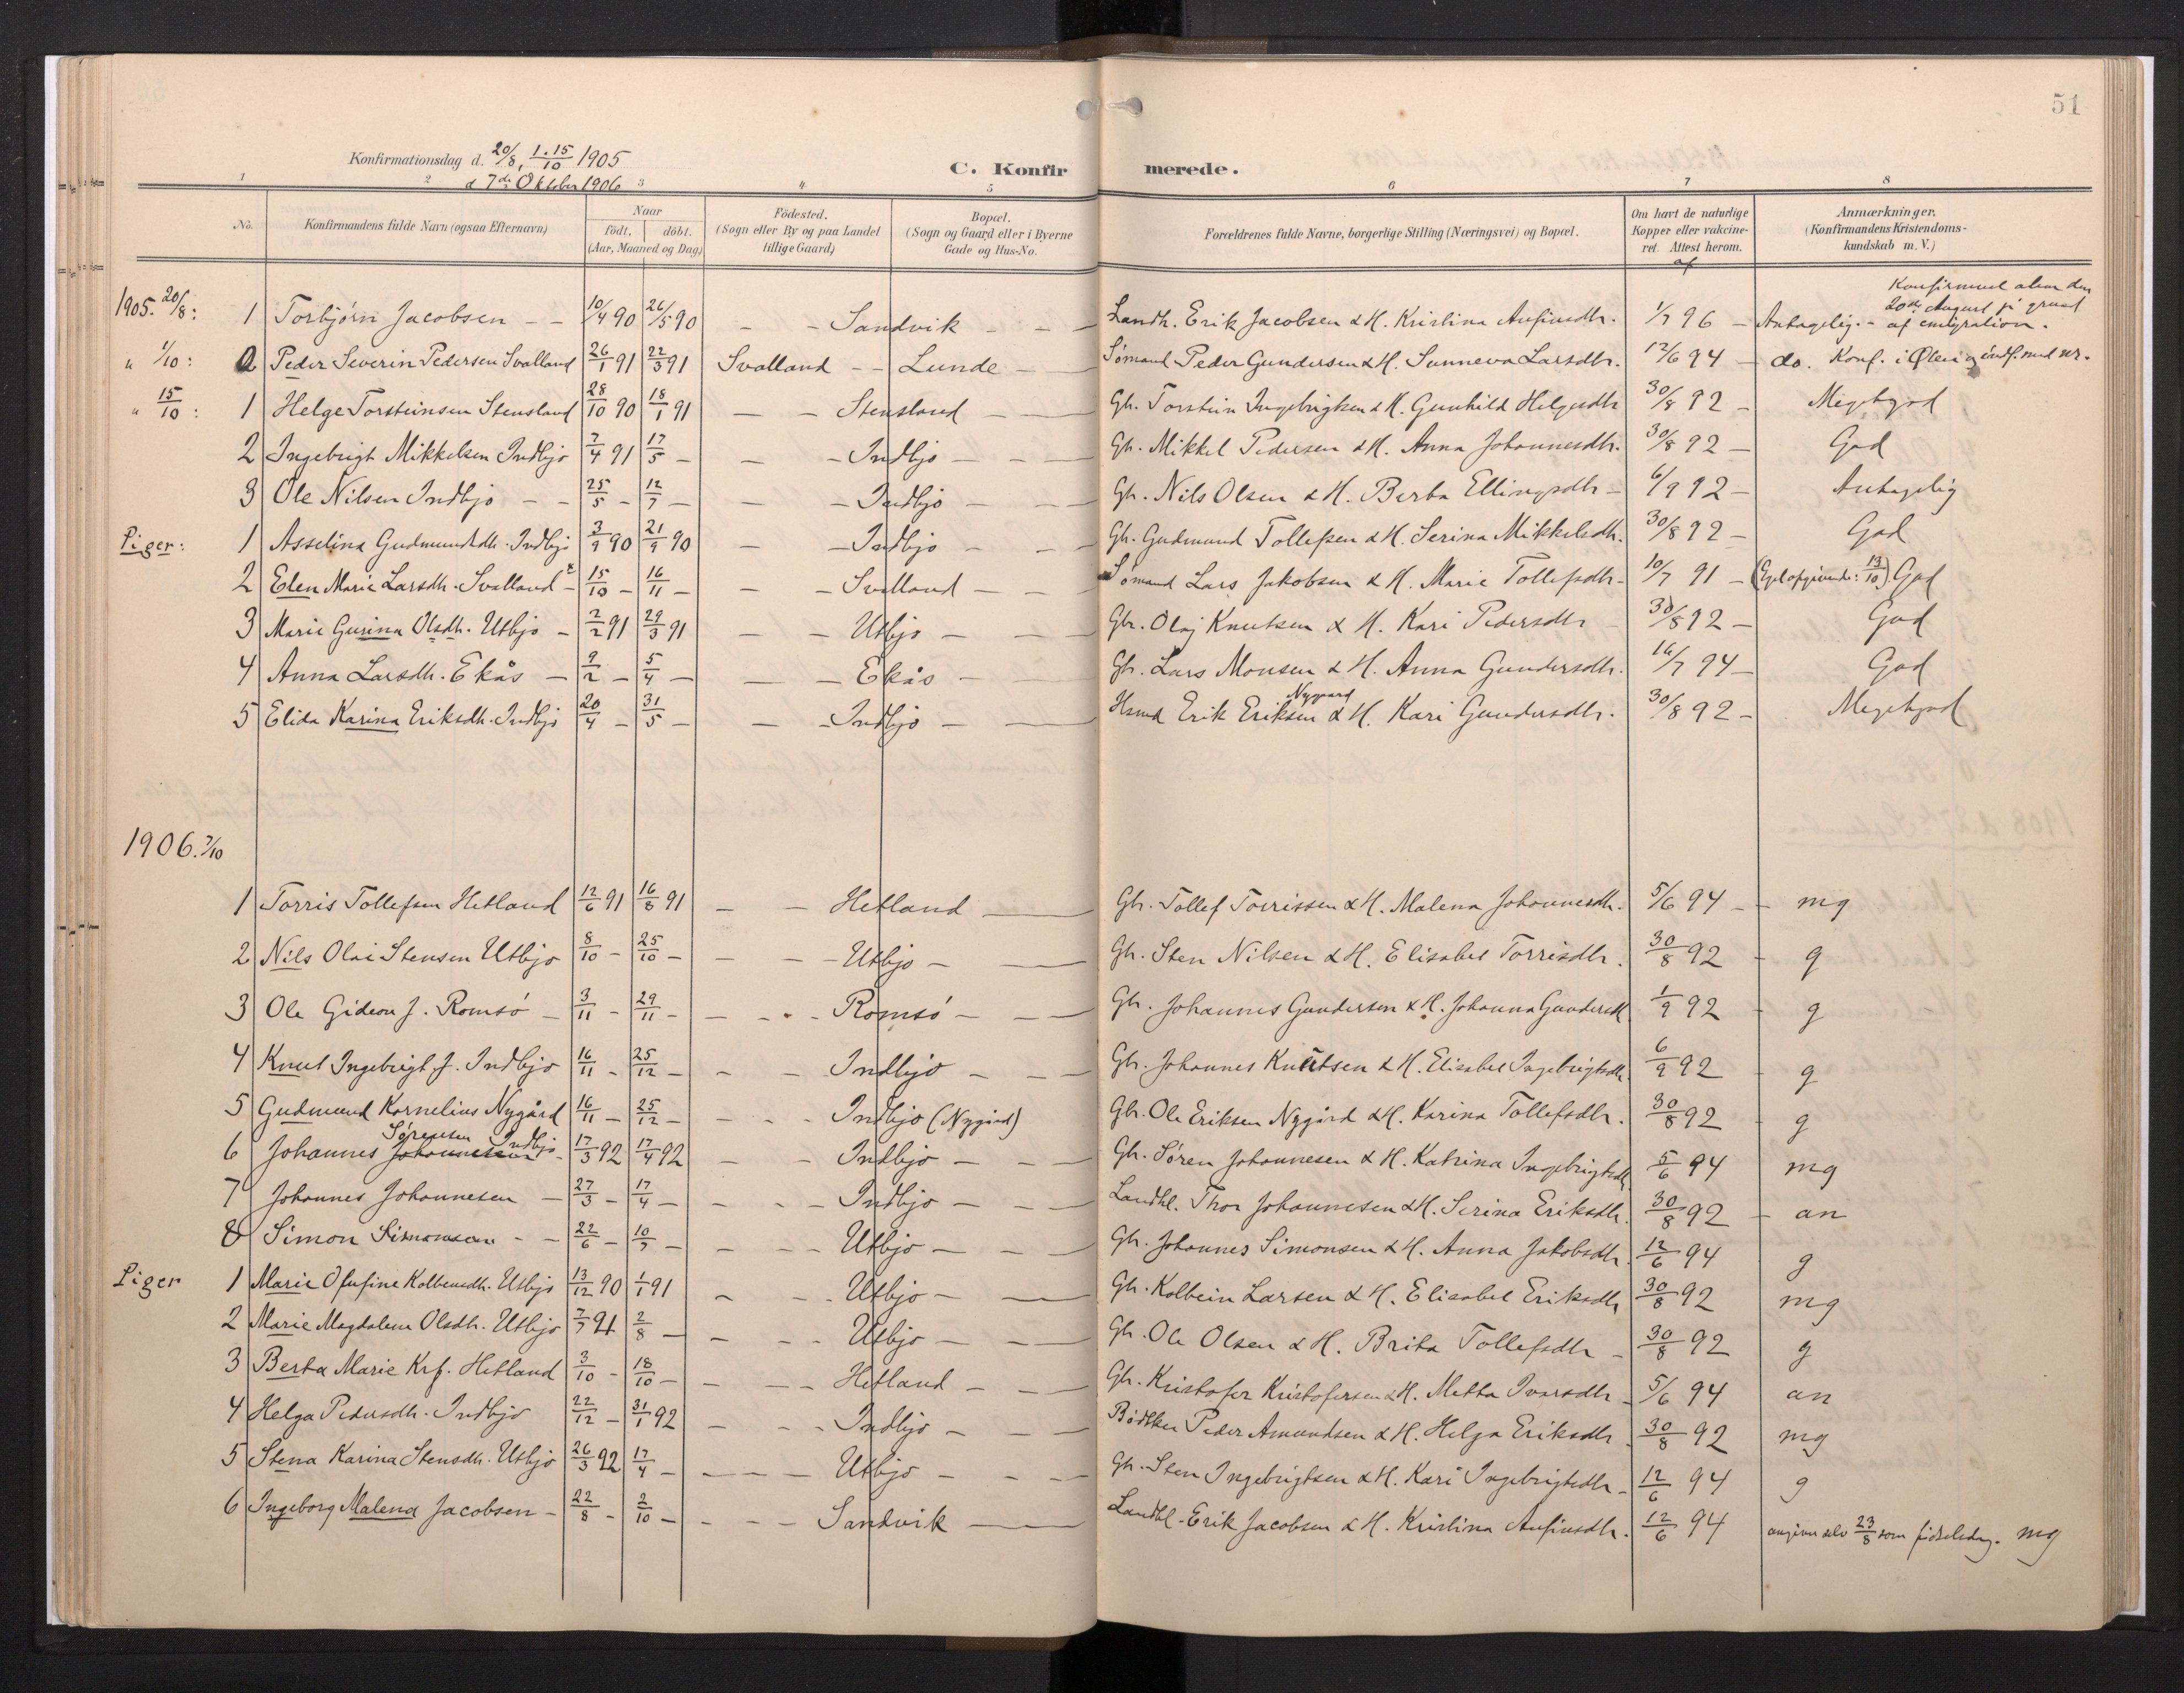 51
Konfirmationsdag d. 20/8, 1.15/10 1905
d 7de Oktober 1906
C. Konfirmerede.
1 2 3 4 5 6 7 8
No. Konfirmandens fulde Navn (ogsaa Efternavn) Naar födt, döbt. (Aar, Maaned og Dag) Födested. (Sogn eller By og paa Landet tillige Gaard) Bopæl. (Sogn og Gaard eller i Byerne Gade og Hus-No. Forældrenes fulde Navne, borgerlige Stilling (Næringsvei) og Bopæl. Om havt de naturlige Kopper eller vakcineret. Attest herom. af Anmærkninger. (Konfirmandens Kristendomskundskab m. V.)
1905. 20/8: 1 Torbjörn Jacobsen - - 10/4 90 26/5 90 - - Sandvik - - - Landh. Erik Jacobsen & H. Kristina Aufinsdtr. 1/7 96 - Antagelig. - Konfirmeret alene den 20de August på grund af emigration.
" 1/10: 2 Peder Severin Pedersen Svalland 26/1 91 22/3 91 Svalland - - Lunde - - Sømand Peder Gundersen & H. Sunneva Larsdtr. 12/6 94 - do. Konf. i Ølen
" 15/10: 1 Helge Torsteinsen Stensland 28/10 90 18/1 91 - - Stensland - - Gbr. Torstein Ingebrigtsen & H. Gunhild Helgesdtr 30/8 92 - Megetgod
2 Ingebrigt Mikkelsen Indbjo 7/4 91 17/5 - - - Indbjo - - - Gbr. Mikkel Pedersen & H. Anna Johannesdtr. 30/8 92 - God
3 Ole Nilsen Indbjo - - 25/5 - 12/7 - - - Indbjo - - Gbr. Nils Olsen & H. Berta Ellingsdtr - 6/9 92 - Antagelig
Piger: 1 Asselina Gudmundsdtr. Indbjo 3/9 90 21/9 90 - - Indbjo - - - Gbr. Gudmund Tollefsen & H. Serina Mikkelsdtr. 30/8 92 - God
2 Elen Marie Larsdtr. Svalland - 15/10 - 16/11 - - - Svalland - - Sömand Lars Jakobsen & H. Marie Tollefsdtr - 10/7 91 - (Egl opgivende: 13/10) God
3 Marie Gurina Olsdtr. Utbjo - 2/2 91 29/3 91 - - Utbjo - - Gbr. Olaj Knutsen & H. Kari Pedersdtr - 30/8 92 - God
4 Anna Larsdtr. Ekås - 9/2 - 5/4 - - - Ekås - - Gbr. Lars Monsen & H. Anna Gundersdtr. 16/7 94 - God
5 Elida Karina Eriksdtr. Indbjo 20/4 - 31/5 - - - Indbjo - - Hsmd Erik Eriksen Nygaard & H. Kari Gundersdtr. 30/8 92 - Megetgod
1906. 7/10
1 Torris Tollefsen Hetland 12/6 91 16/8 91 - - Hetland - Gbr. Tollef Torrissen & H. Malena Johannesdtr. 5/6 94 - - mg
2 Nils Olai Stensen Utbjo 8/10 - 25/10 - - - Utbjo - - Gbr. Sten Nilsen & H. Elisabet Torrisdtr. 30/8 92 - g
3 Ole Gideon J. Romsö - 3/11 - 29/11 - - - - Romsö - - - Gbr. Johannes Gundersen & H. Johanna Gundersdtr 1/9 92 - g
4 Knut Ingebrigt J. Indbjo 16/11 - 25/12 - - - Indbjo - - - Gbr. Johannes Knutsen & H. Elisabet Ingebrigtsdtr. 6/9 92 - g
5 Gudmund Kornelius Nygård 16/11 - 25/12 - - - - Indbjo (Nygård) Gbr. Ole Eriksen Nygård & H. Karina Tollefsdtr. 30/8 92 - g
6 Johannes Johannesen Sørensen Indbjo - 17/3 92 17/4 92 - - Indbjo - - - Gbr. Søren Johannesen & H. Katrina Ingebrigtsdtr. 5/6 94 mg
7 Johannes Johannesen - 27/3 - 17/4 - - - - Indbjo - - - Landhl. Thor Johannesen & H. Serina Eriksdtr. 30/8 92 - an
8 Simon Simonsen - - 22/6 - 10/7 - - - - Utbjo - - - Gbr. Johannes Simonsen & H. Anna Jakobsdtr. 12/6 94 g
Piger 1 Marie Kolbensdtr. Utbjo 13/12 90 1/1 91 - - - Utbjo - - Gbr. Kolbein Larsen & H. Elisabet Eriksdtr 30/8 92 mg
2 Marie Magdalena Olsdtr. Utbjo 7/7 91 2/8 - - - - Utbjo - - - Gbr. Ole Olsen & H. Brita Tollefsdtr - 30/8 92 g
3 Berta Marie Krf. Hetland 3/10 - 18/10 - - - - Hetland - - - Gbr. Kristofer Kristofersen & H. Metta Ivarsdtr - 5/6 94 an
4 Helga Pedersdtr. Indbjo 22/12 - 31/1 92 - - - Indbjo - - - Bödtker Peder Amundsen & H. Helga Eriksdtr 30/8 92 mg
5 Stena Karina Stensdtr. Utbjo 26/3 92 17/4 - - - - Utbjo - - - Gbr. Sten Ingebrigtsen & H. Kari Ingebrigtsdtr - 12/6 94 g
6 Ingeborg Malena Jacobsen - 22/8 - 2/10 - - - - Sandvik - Landhl. Erik Jacobsen & H. Kristina Aufinsdtr. 12/6 94 angiver selv 23/8 som fødselsdag. mg